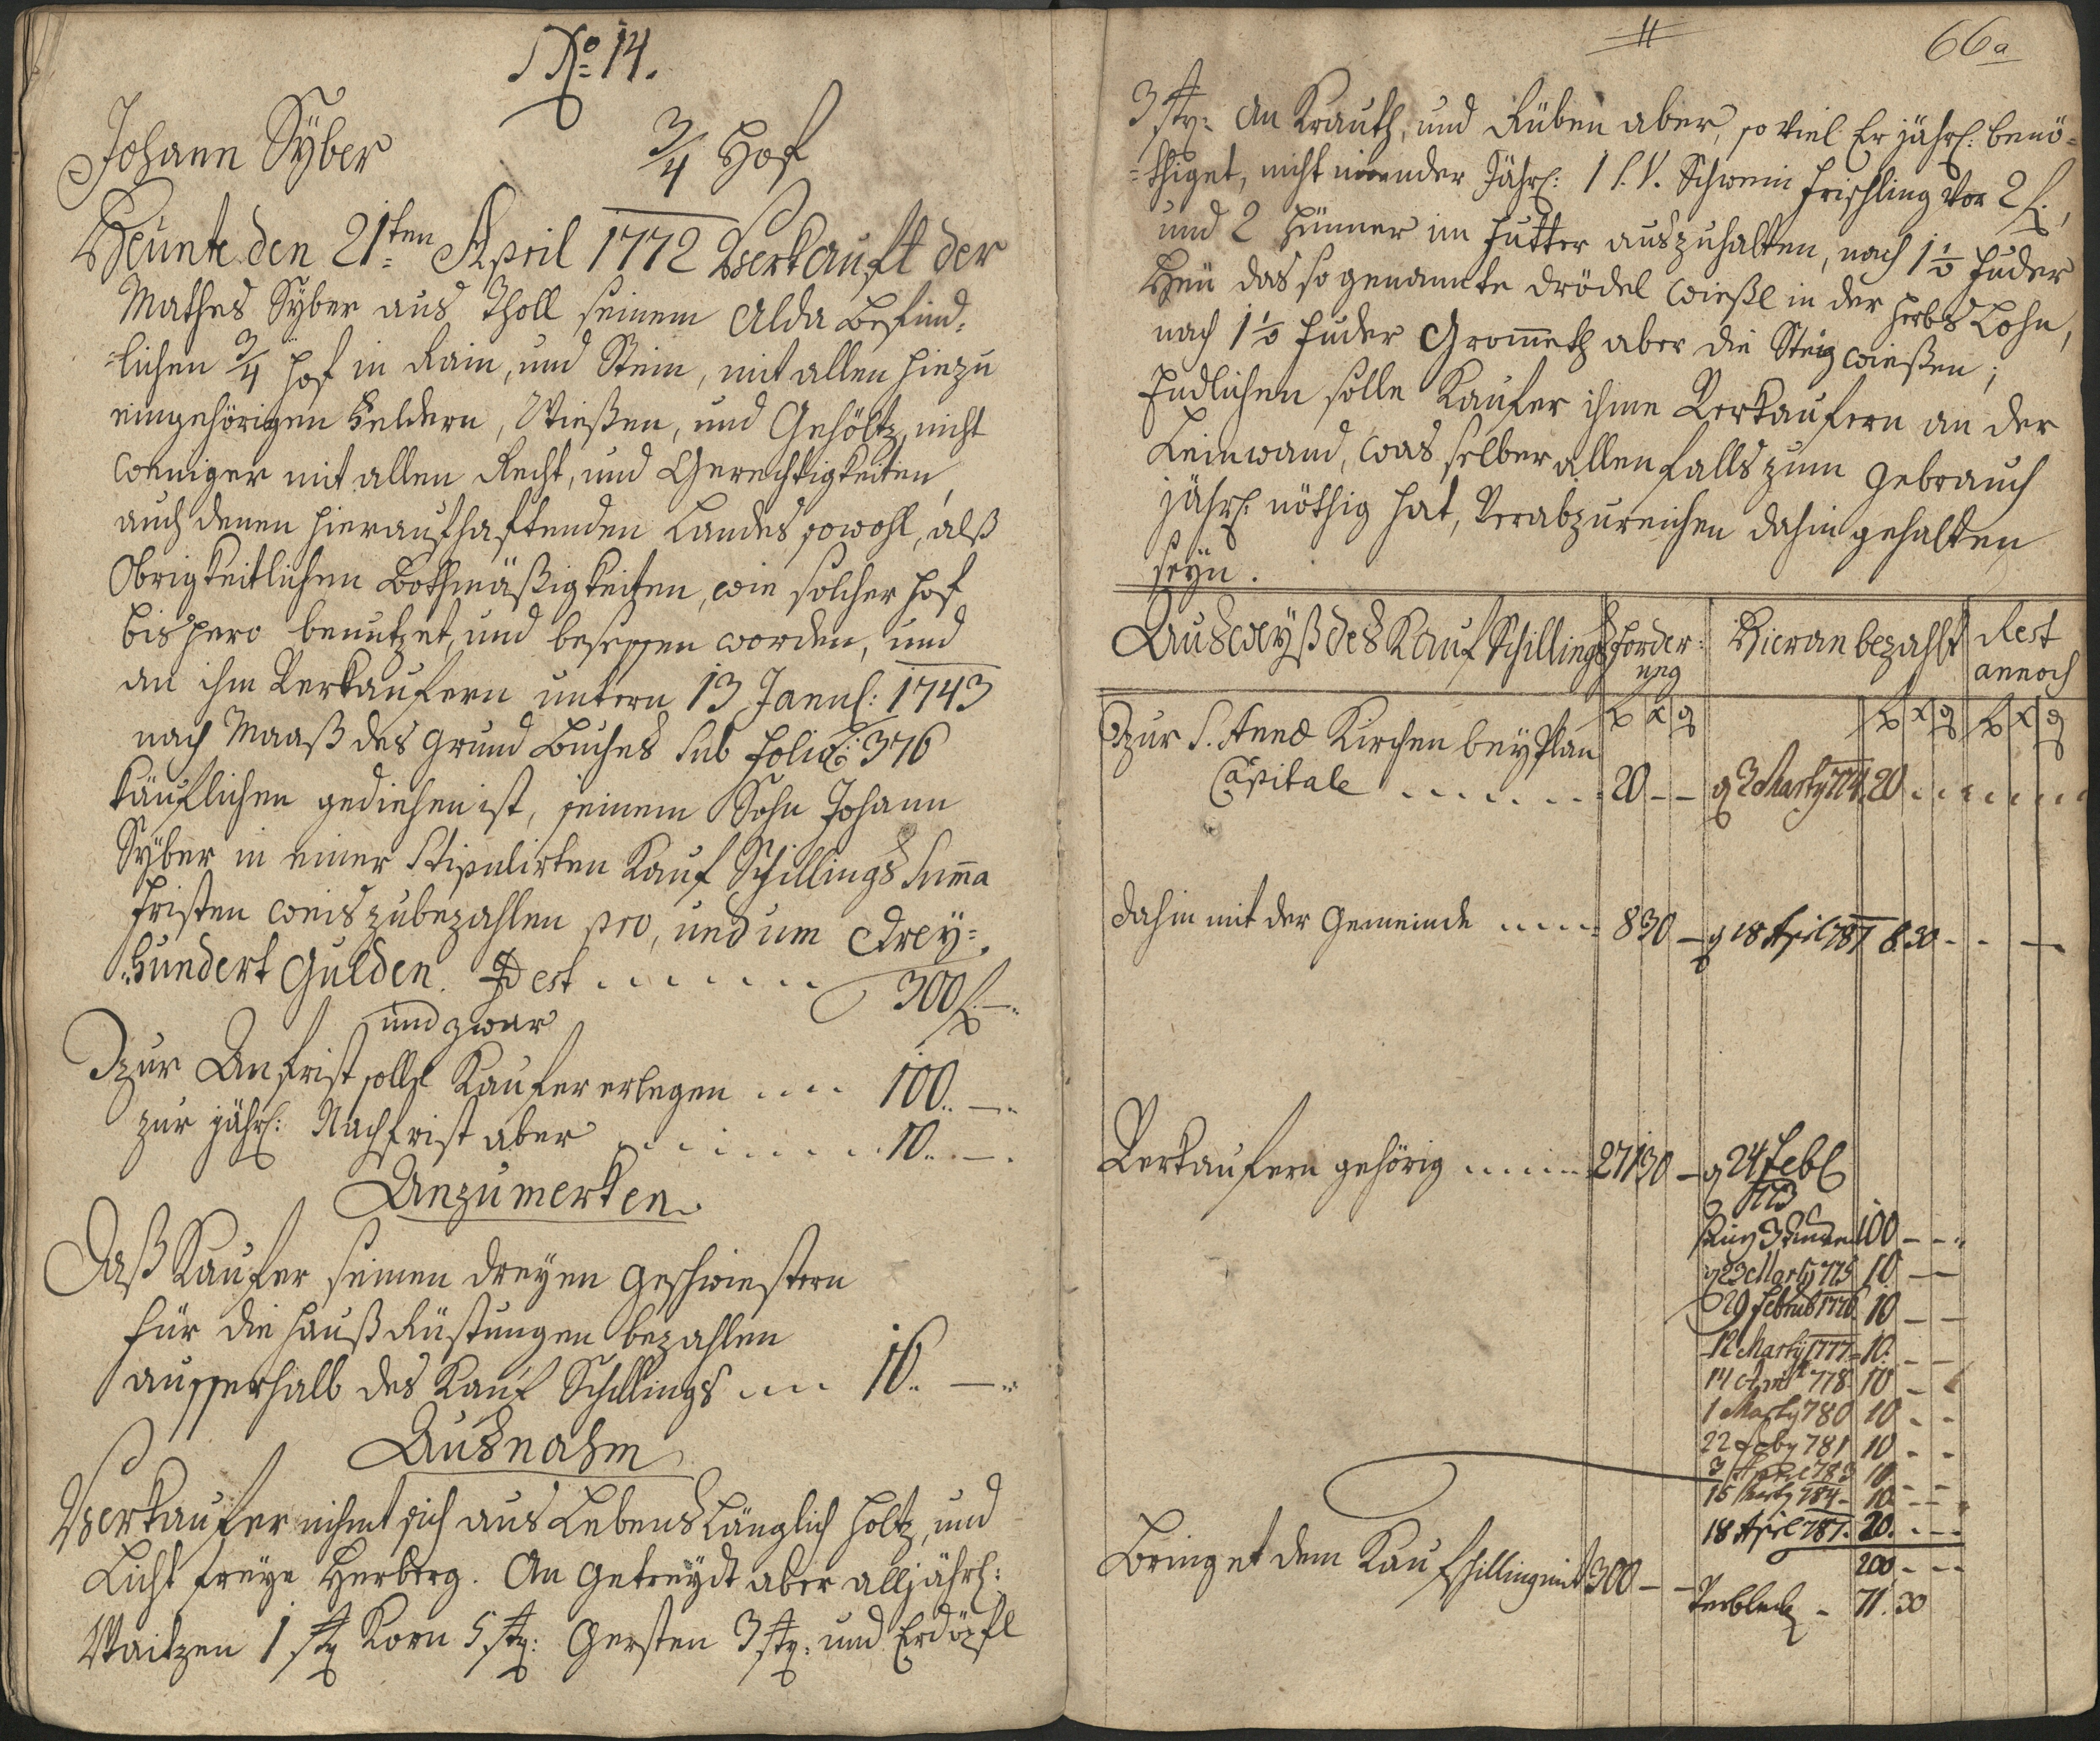 No. 14.
Johann Syber 3/4 Hof
Heunte den 21ten April 1772 Verkauft der
Mathes Syber aus Tholl seinem Alda Befind-
-lichen 3/4 Hof in Rain, und Stein, mit allen hiezu
eingehörigen Feldern, Wießen, und Gehöltz, nicht
weniger mit allen Recht, und Gerechtigkeiten,
auch denen hieraufhaftenden Landes sowohl, alß
Obrigkeitlichen Bothmäßigkeiten, wie solcher Hof
bishero benutzet, und besessen worden, und
an ihm Verkaufern untern 13 Januar: 1743
nach Maaß des Grund Buches Sub folio: 376
käuflichen gediehen ist, seinem Sohn Johann
Syber in einer Stipulirten Kauf Schillings Summa
fristen weis zubezahlen pro, und um Drey-
hundert Gulden. Id est ....... 300 f. —
und zwar
Zur Anfrist solle Kaufer erlegen .... 100.. —
zur jährl: Nachfrist aber ........ 10.. —
Anzumerken.
Daß Kaufer seinen dreyen Geschwiestern
für die Hauß Rüstungen bezahlen
ausserhalb des Kauf Schillings .... 16.. —
Ausnahm
Verkaufer nihmt sich aus Lebens Länglich Holtz, und
Licht freye Herberg. An Getreydt aber alljährl:
Waitzen 1 str Korn 5 str: Gersten 3 str: und Erdöpfl
66a
3 str: An Krauth, und Rüben aber, so viel Er jährl: benö-
-thiget, nicht minder Jährl: 1 S. V. Schwein frischling vor 2 f.,
und 2 Hünner im Futter auszuhalten, nach 1 1/2 Fuder
Heu das so genannte drödel wießl in der Lohn,
nach 1 1/2 Fuder Grommeth aber die Steig wießen;
Endlichen solle Kaufer ihme Verkaufern an der
Leinwand, was selber allenfalls zum Gebrauch
jährl: nöthig hat, Verabzureichen dahin gehalten
seyn.
Ausweyß des Kauf Schillings Forder- Hieran bezahlt Rest
ung annoch
f x d f x d f x d
Zur S. Annæ Kirchen bey Plan
Capitale ....... 20 — — d 3 Marty 774 20 ......
Dahin mit der Gemeinde ..... 8 30 — d 18 April 787 8 30 - - —
Verkaufern gehörig ...... 271 30 — d 24 Feb
773
100 - - -
d 23 Marty 775 10 — —
29 Februar 1776 10 — —
12 Marty 1777 10 — —
14 April 778 10 - -
1 Marty 780 10 - -
22 781 10 - -
3 April 783 10 - -
15 Marty 784 - 10 - -
18 April 787. 20. - - -
200. - - -
Bringet dem Kaufschilling mit 300 — — Verbleib - 71. 30